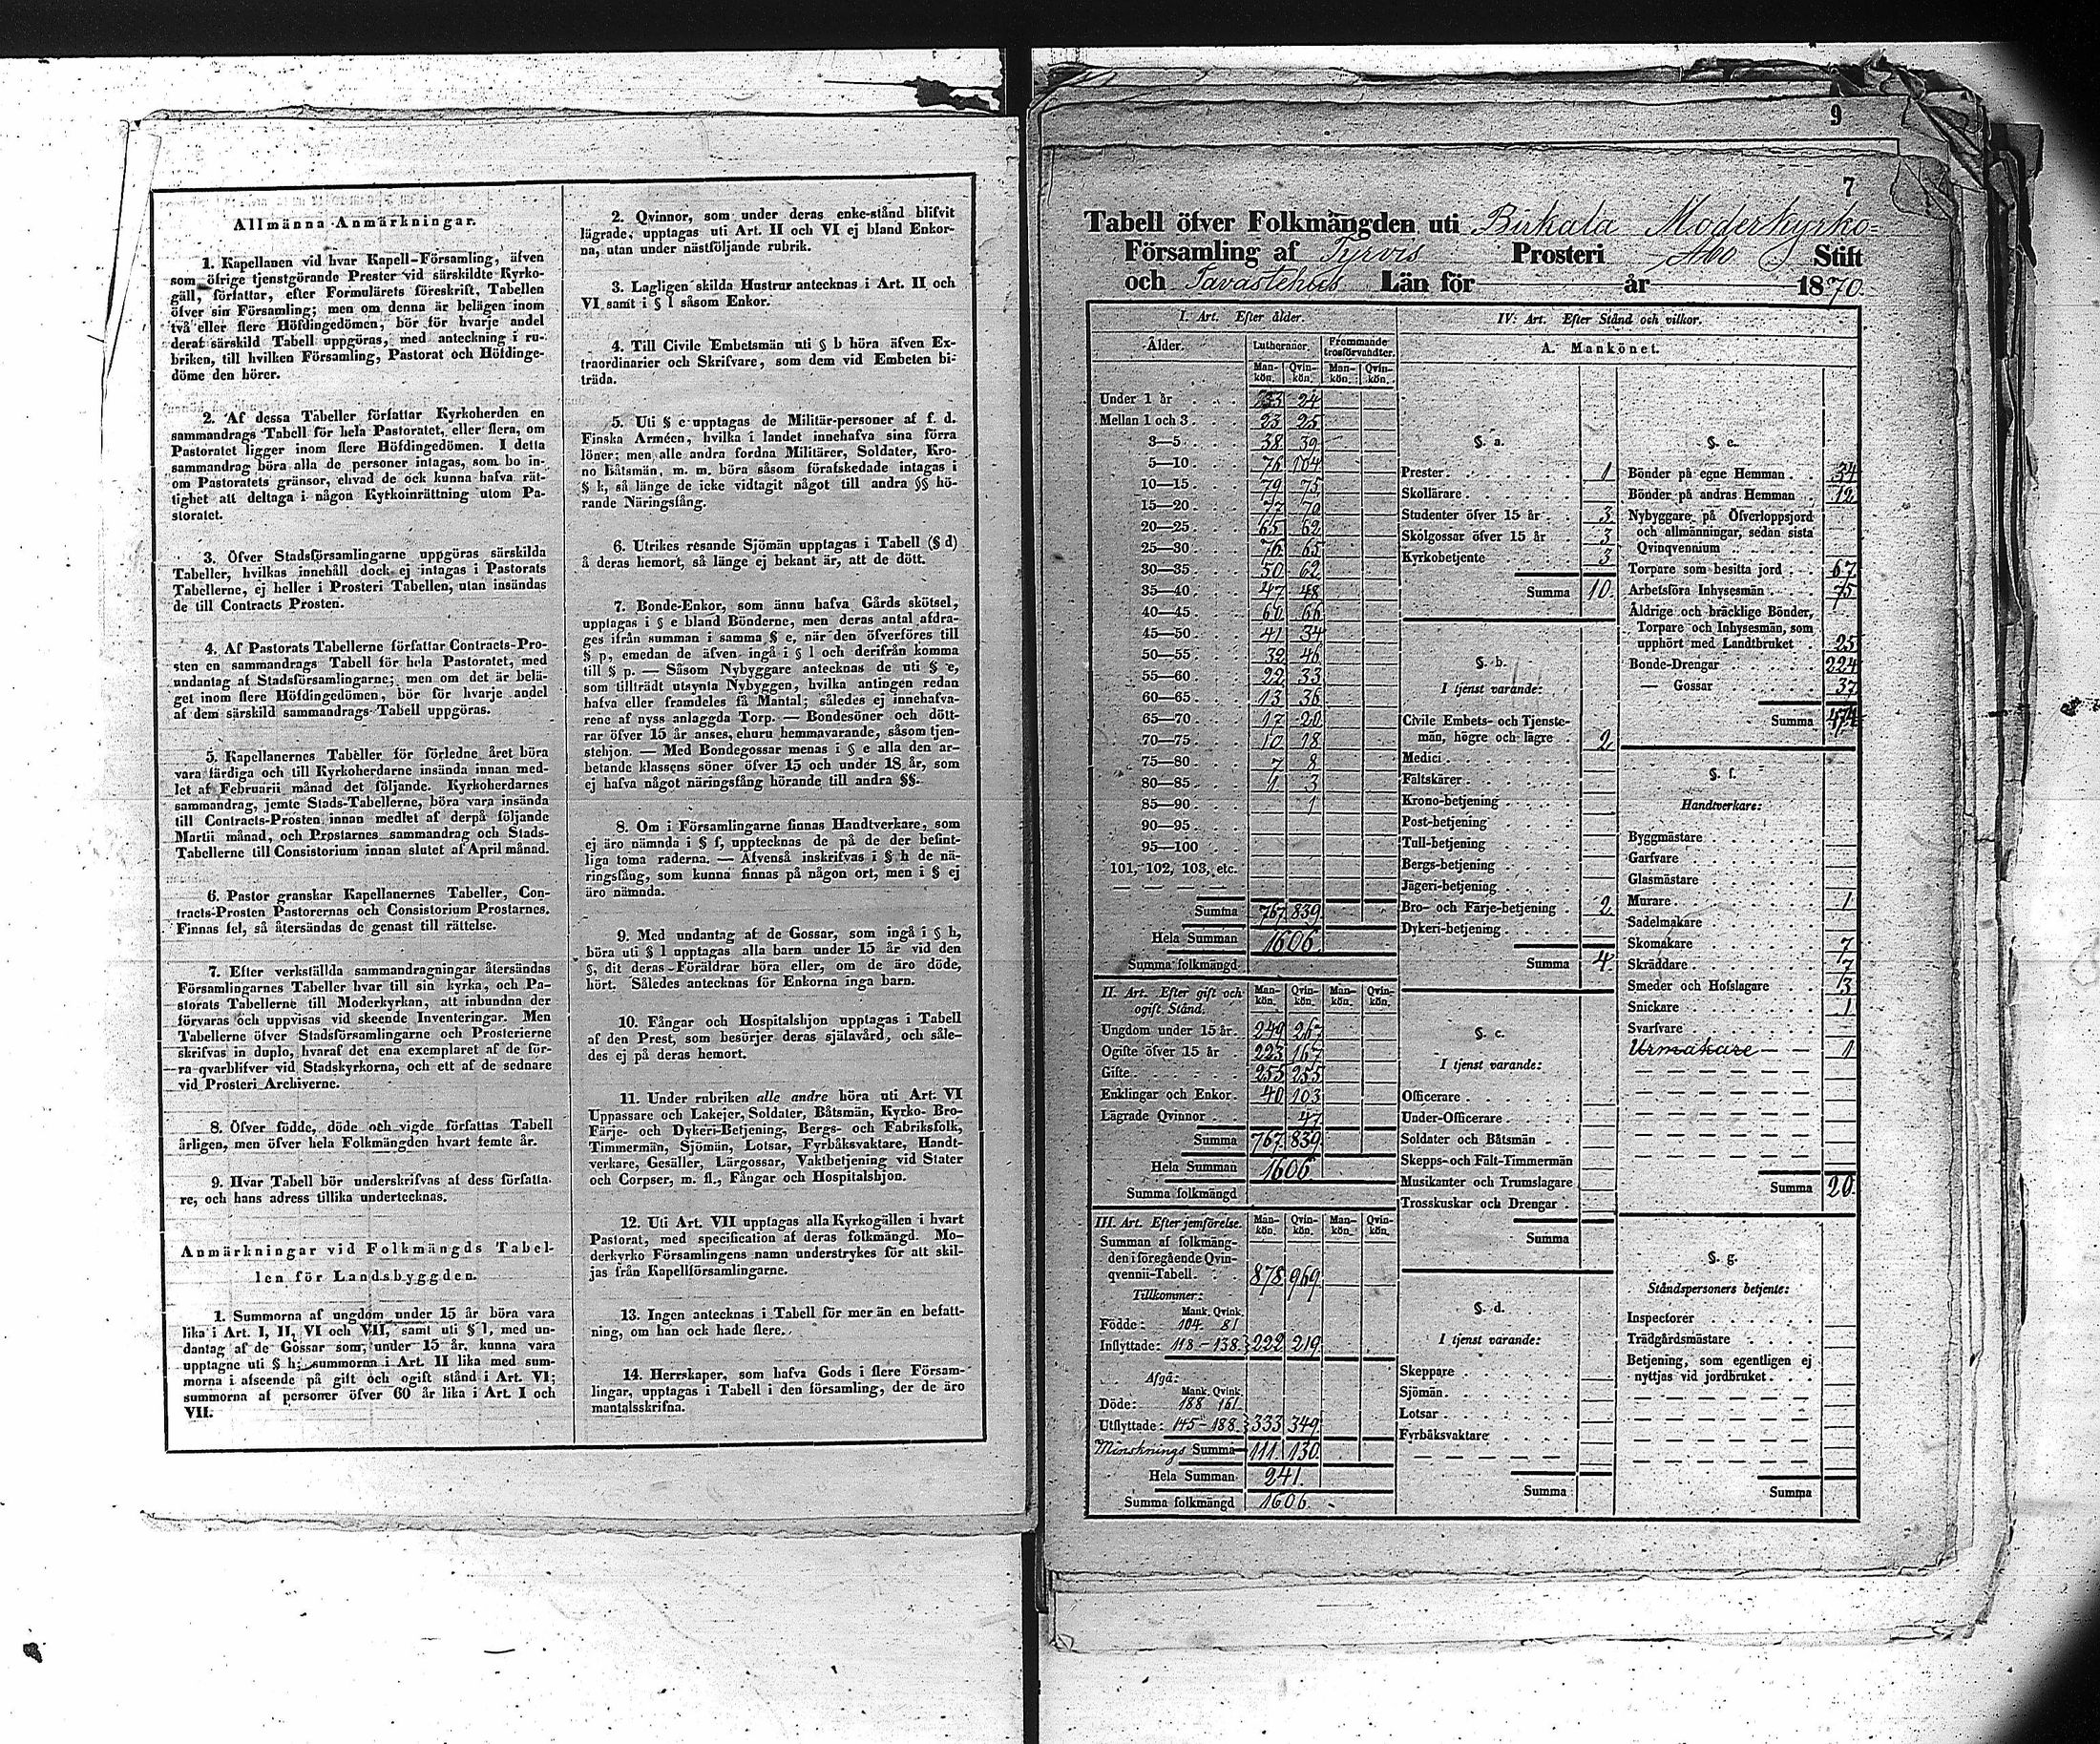 Allmänna Anmärkningar.
1. Kapellanen vid hvar Kapell-Församling, äfven
som öfrige tjenstgörande Prester vid särskildte Kyrko-
gäll, författar, efter Formulärets föreskrift, Tabellen
öfver sin Församling; men om denna är belägen inom
två eller flere Höfdingedömen, bör för hvarje andel
deraf särskild Tabell uppgöras, med anteckning i ru-
briken, till hvilken Församling, Pastorat och Höfdinge-
döme den hörer.
2. Af dessa Tabeller författar Kyrkoherden en
sammandrags Tabell för hela Pastoratet, eller flera, om
Pastoratet ligger inom flere Höfdingedömen. I detta
sammandrag böra alla de personer intagas, som bo in-
om Pastoratets gränsor, ehvad de ock kunna hafva rät-
tighet att deltaga i någon Kyrkoinrättning utom Pa-
storatet.
3. Öfver Stadsförsamlingarne uppgöras särskilda
Tabeller, hvilkas innehåll dock ej intagas i Pastorats
Tabellerne, ej heller i Prosteri Tabellen, utan insändas
de till Contracts Prosten.
4. Af Pastorats Tabellerne författar Contracts-Pro-
sten en sammandrags Tabell för hela Pastoratet, med
undantag af Stadsförsamlingarne; men om det är belä-
get inom flere Höfdingedömen, bör för hvarje andel
af dem särskild sammandrags Tabell uppgöras.
5. Kapellanernes Tabeller för förledne året böra
vara färdiga och till Kyrkoherdarne insända innan med-
let af Februarii månad det följande. Kyrkoherdarnes
sammandrag, jemte Stads-Tabellerne, böra vara insända
till Contracts-Prosten innan medlet af derpå följande
Martii månad, och Prostarnes sammandrag och Stads-
Tabellerne till Consistorium innan slutet af April månad.
6. Pastor granskar Kapellanernes Tabeller, Con-
tracts-Prosten Pastorernas och Consistorium Prostarnes.
Finnas fel, så återsändas de genast till rättelse.
7. Efter verkställda sammandragningar återsändas
Församlingarnes Tabeller hvar till sin kyrka, och Pa-
storats Tabellerne till Moderkyrkan, att inbundna der
förvaras och uppvisas vid skeende Inventeringar. Men
Tabellerne öfver Stadsförsamlingarne och Prosterierne
skrifvas in duplo, hvaraf det ena exemplaret af de för-
ra qvarblifver vid Stadskyrkorna, och ett af de sednare
vid Prosteri Archiverne.
8. Öfver födde, döde och vigde författas Tabell
årligen, men öfver hela Folkmängden hvart femte år.
9. Hvar Tabell bör underskrifvas af dess författa-
re, och hans adress tillika undertecknas.
Anmärkningar vid Folkmängds Tabel-
len för Landsbyggden.
1. Summorna af ungdom under 15 år böra vara
lika i Art. I, II, VI och VII, samt uti § l, med un-
dantag af de Gossar som, under 15 år, kunna vara
upptagne uti § h; summorna i Art. II lika med sum-
morna i afseende på gift och ogift stånd i Art. VI;
summorna af personer öfver 60 år lika i Art. I och
VII.
2. Qvinnor, som under deras enke-stånd blifvit
lägrade, upptagas uti Art. II och VI ej bland Enkor-
na, utan under nästföljande rubrik.
3. Lagligen skilda Hustrur antecknas i Art. II och
VI samt i § l såsom Enkor.
4. Till Civile Embetsmän uti § b höra äfven Ex-
traordinarier och Skrifvare, som dem vid Embeten bi-
träda.
5. Uti § c upptagas de Militär-personer af f. d.
Finska Armeen, hvilka i landet innehafva sina förra
löner; men alle andra fordna Militärer, Soldater, Kro-
no Båtsmän, m. m. böra såsom förafskedade intagas i
§ k, så länge de icke vidtagit något till andra §§ hö-
rande Näringsfång.
6. Utrikes resande Sjömän upptagas i Tabell (§ d)
å deras hemort, så länge ej bekant är, att de dött.
7. Bonde-Enkor, som ännu hafva Gårds skötsel,
upptagas i § e bland Bönderne, men deras antal afdra-
ges ifrån summan i samma § e, när den öfverföres till
§ p, emedan de äfven ingå i § l och derifrån komma
till § p. — Såsom Nybyggare antecknas de uti § e,
som tillträdt utsynta Nybyggen, hvilka antingen redan
hafva eller framdeles få Mantal; således ej innehafva-
rene af nyss anlaggda Torp. — Bondesöner och dött-
rar öfver 15 år anses, ehuru hemmavarande, såsom tjen-
stehjon. — Med Bondegossar menas i § e alla den ar-
betande klassens söner öfver 15 och under 18 år, som
ej hafva något näringsfång hörande till andra §§.
8. Om i Församlingarne finnas Handtverkare, som
ej äro nämnda i § f, upptecknas de på de der befint-
liga toma raderna. — Äfvenså inskrifvas i § h de nä-
ringsfång, som kunna finnas på någon ort, men i § ej
äro nämnda.
9. Med undantag af de Gossar, som ingå i § h,
böra uti § l upptagas alla barn under 15 år vid den
§, dit deras Föräldrar höra eller, om de äro döde,
hört. Således antecknas för Enkorna inga barn.
10. Fångar och Hospitalshjon upptagas i Tabell
af den Prest, som besörjer deras själavård, och såle-
des ej på deras hemort.
11. Under rubriken alle andre höra uti Art. VI
Uppassare och Lakejer, Soldater, Båtsmän, Kyrko- Bro-
Färje- och Dykeri-Betjening, Bergs- och Fabriksfolk,
Timmermän, Sjömän, Lotsar, Fyrbåksvaktare, Handt-
verkare, Gesäller, Lärgossar, Vaktbetjening vid Stater
och Corpser, m. fl., Fångar och Hospitalshjon.
12. Uti Art. VII upptagas alla Kyrkogällen i hvart
Pastorat, med specification af deras folkmängd. Mo-
derkyrko Församlingens namn understrykes för att skil-
jas från Kapellförsamlingarne.
13. Ingen antecknas i Tabell för mer än en befatt-
ning, om han ock hade flere.
14. Herrskaper, som hafva Gods i flere Försam-
lingar, upptagas i Tabell i den församling, der de äro
mantalsskrifna.
9
7
Tabell öfver Folkmängden uti Birkala Moderkyrko=
Församling af Tyrvis Prosteri Åbo Stift
och Tavastehus Län för år 1870.
I. Art. Efter ålder.
Ålder. Lutheraner. Frammande trosförvandter.
Man-kön. Qvin-kön. Man-kön. Qvin-kön.
Under 1 år 33 24
Mellan 1 och 3 23 25
3—5 38 39
5—10 76 104
10—15 79 75
15—20 77 70
20—25 65 62
25—30 76 65
30—35 50 62
35—40 47 48
40—45 60 66
45—50 41 34
50—55 32 46
55—60 22 33
60—65 13 36
65—70 17 20
70—75 10 18
75—80 7 8
80—85 1 3
85—90 1
90—95
95—100
101, 102, 103, etc.
Summa 767 839
Hela Summan 1606
Summa folkmängd
II. Art. Efter gift och ogift Stånd. Man-kön. Qvin-kön. Man-kön. Qvin-kön.
Ungdom under 15 år 249 267
Ogifte öfver 15 år 223 167
Gifte 255 255
Enklingar och Enkor 40 103
Lägrade Qvinnor 47
Summa 767 839
Hela Summan 1606
Summa folkmängd
III. Art. Efter jemförelse. Man-kön. Qvin-kön. Man-kön. Qvin-kön.
Summan af folkmäng-
den i föregående Qvin-
qvennii-Tabell. 878 969
Tillkommer:
Mank. Qvink.
Födde: 104 81
Inflyttade: 118 – 138 } 222 219
Afgå:
Mank. Qvink.
Döde: 188 161
Utflyttade: 145 – 188 } 333 349
Minsknings Summa 111 130
Hela Summan 241
Summa folkmängd 1606
IV. Art. Efter Stånd och vilkor.
A. Mankönet.
§. a.
Prester 1
Skollärare
Studenter öfver 15 år 3
Skolgossar öfver 15 år 3
Kyrkobetjente 3
Summa 10
§. b.
I tjenst varande:
Civile Embets- och Tjenste-
män, högre och lägre 2
Medici
Fältskärer
Krono-betjening
Post-betjening
Tull-betjening
Bergs-betjening
Jägeri-betjening
Bro- och Färje-betjening 2
Dykeri-betjening
Summa 4
§. c.
I tjenst varande:
Officerare
Under-Officerare
Soldater och Båtsmän
Skepps- och Fält-Timmermän
Musikanter och Trumslagare
Trosskuskar och Drengar
Summa
§. d.
I tjenst varande:
Skeppare
Sjömän
Lotsar
Fyrbåksvaktare
Summa
§. e.
Bönder på egne Hemman 34
Bönder på andras Hemman 12
Nybyggare på Öfverloppsjord
och allmänningar, sedan sista
Qvinqvennium
Torpare som besitta jord 67
Arbetsföra Inhysesmän 75
Åldrige och bräcklige Bönder,
Torpare och Inhysesmän, som
upphört med Landtbruket 25
Bonde-Drengar 224
— Gossar 37
Summa 474
§. f.
Handtverkare:
Byggmästare
Garfvare
Glasmästare
Murare 1
Sadelmakare
Skomakare 7
Skräddare 7
Smeder och Hofslagare 3
Snickare 1
Svarfvare
Urmakare 1
Summa 20
§. g.
Ståndspersoners betjente:
Inspectorer
Trädgårdsmästare
Betjening, som egentligen ej
nyttjas vid jordbruket
Summa